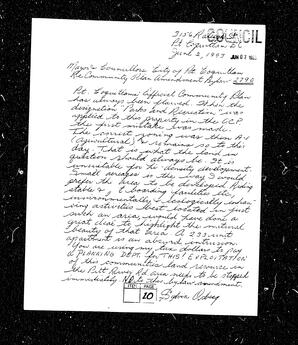 COUNCIL
Pt Coquitlam BC
June 2, 1993
JUN 07 1993
Mayor & Councillors City of Pt. Coquitlam
Re Community Plan Amendment Bylaw 2790
Pt. Coquitlam's Official Community Plan
has always been flawed. When the
designation "Parks and Recreation" was
applied to this property in the OCP
the first mistake was made.
The correct zoning was then A-1
(Agricultural) & remains so to this
day. That is what the land in
question should always be. It is
unsuitable for density development.
Small acreages is the way I would
prefer the area to be developed. Riding
stables & boarding facilities and
environmentally & ecologically
activities best suited in just
such an area, would have done a
great deal to highlight the natural
beauty of that area. A 233 unit
apartment is an absurd intrusion.
You are using my tax dollars to pay
a PLANNING DEPT. for THIS! EXPLOITATION
of this communities land resource in
the Pitt River Rd area needs to be stopped
immediately. NO to the by-law amendment.
ITEM PAGE
10